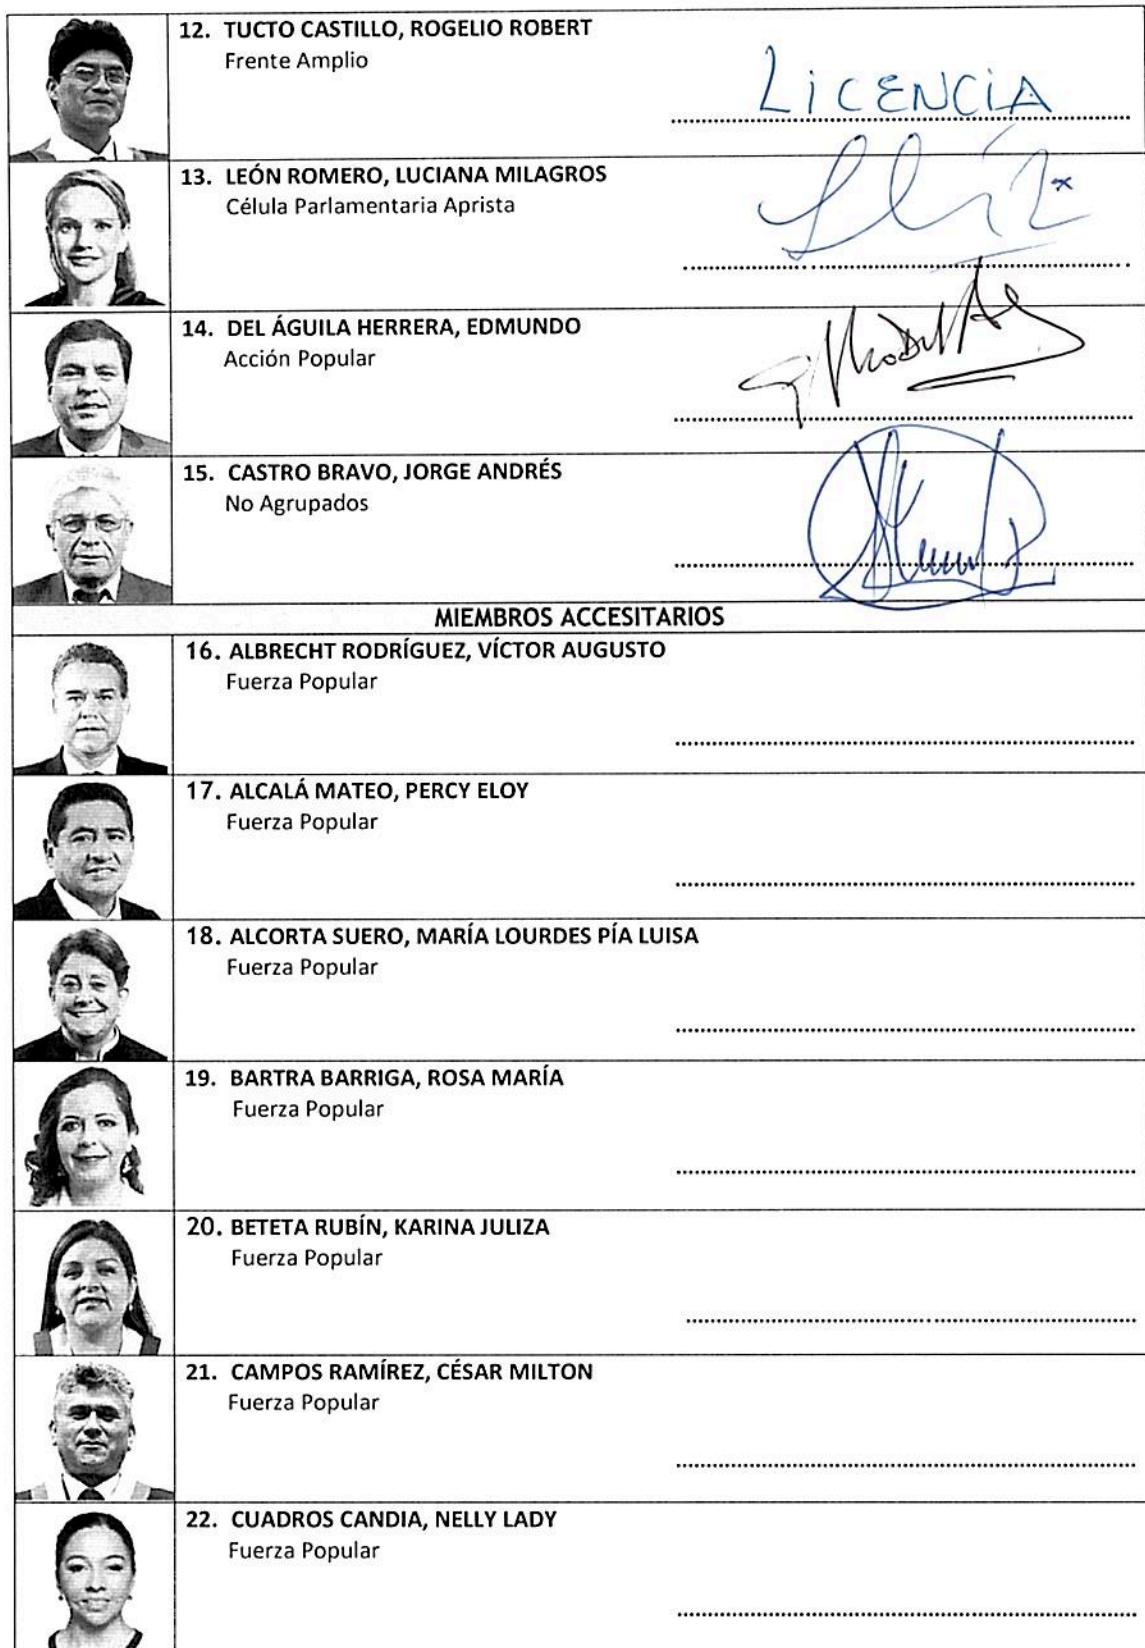 12. TUCTO CASTILLO, ROGELIO ROBERT
Frente Amplio
LiCENCiA
13. LEÓN ROMERO, LUCIANA MILAGROS
Célula Parlamentaria Aprista
14. DEL ÁGUILA HERRERA, EDMUNDO
Acción Popular
15. CASTRO BRAVO, JORGE ANDRÉS
No Agrupados
MIEMBROS ACCESITARIOS
16. ALBRECHT RODRÍGUEZ, VÍCTOR AUGUSTO
Fuerza Popular
17. ALCALÁ MATEO, PERCY ELOY
Fuerza Popular
18. ALCORTA SUERO, MARÍA LOURDES PÍA LUISA
Fuerza Popular
19. BARTRA BARRIGA, ROSA MARÍA
Fuerza Popular
20. BETETA RUBÍN, KARINA JULIZA
Fuerza Popular
21. CAMPOS RAMÍREZ, CÉSAR MILTON
Fuerza Popular
22. CUADROS CANDIA, NELLY LADY
Fuerza Popular